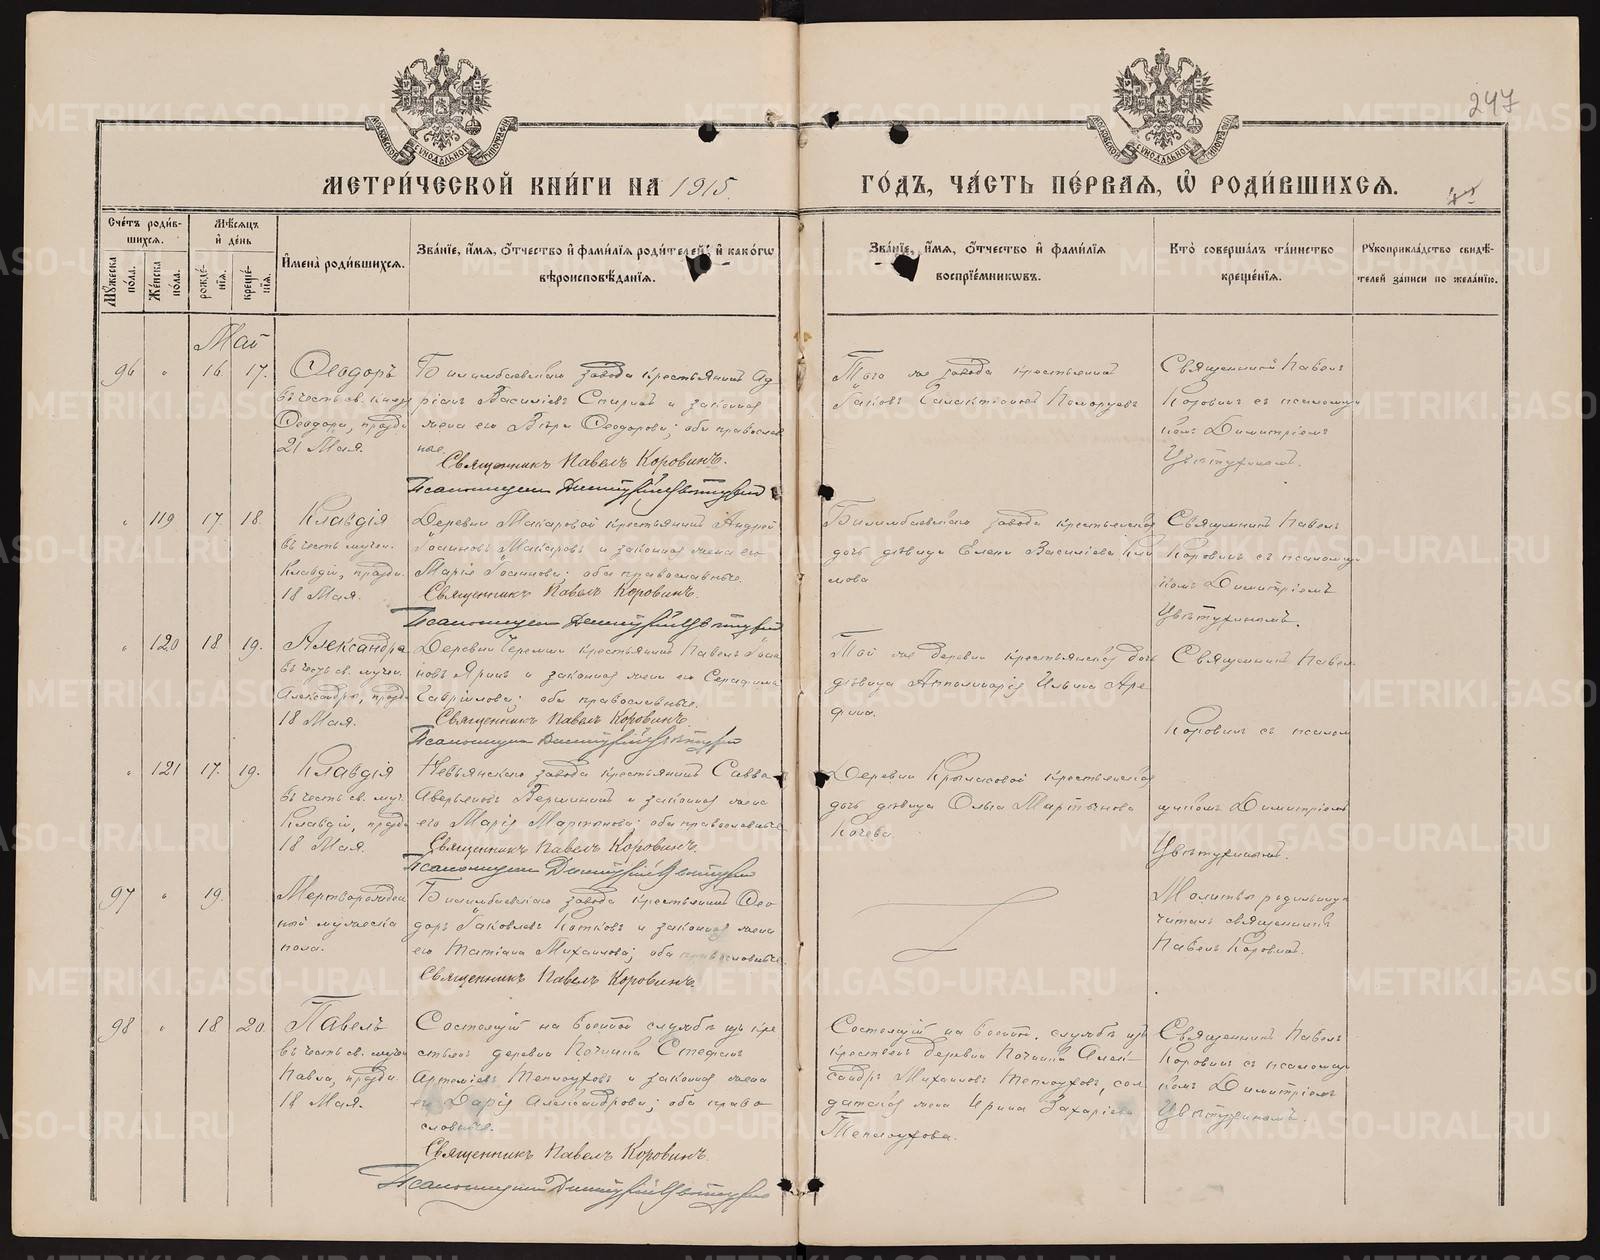 247
МЕТРИ́ЧЕСКОЙ КНИ́ГИ НА 1915
ГО́ДЪ, ЧА́СТЬ ПЕ́РВАЯ, Ѡ҆ РОДИ́ВШИХСЯ.
Сче́тъ роди́в-
шихся.
Мѣ́сяцъ
и҆ де́нь
И҆мена̀ роди́вшихся.
Зва́нїе, и҆́мя, ѻ҆́тчество и҆ фами́лїя роди́телей, и҆ како́гѡ
вѣроисповѣ́данїя.
Зва́нїе, и҆́мя, ѻ҆́тчество и҆ фами́лїя
воспрїе́мникѡвъ.
Кто̀ соверша́лъ та́инство
креще́нїя.
Рꙋкоприкла́дство свидѣ́-
телей за́писи по жела́нїю.
Мꙋ́жеска
по́ла.
Же́нска
по́ла.
рожде́-
нїя.
креще́-
нїя.
Май
96 " 16 17.
Ѳеодоръ
въ честь св. князя
Ѳеодора, праздн.
21 Мая.
Билимбаевскаго завода крестьянинъ Ад
ріанъ Василіевъ и законная
жена его Вѣра Ѳеодорова; оба православ
ные.
Священникъ Павелъ Коровинъ.
Псаломщикъ Димитрій Цвѣтухинъ
Того же завода крестьянинъ
Іаковъ Галактіоновъ
Священникъ Павелъ
Коровинъ съ псаломщи
комъ Димитріемъ
Цвѣтухинымъ.
" 119 17. 18.
Клавдія
въ честь мучен.
Клавдіи, праздн.
18 Мая.
Деревни Макаровой крестьянинъ Андрей
Іоанновъ Макаровъ и законная жена его
Марія Іоаннова; оба православные.
Священникъ Павелъ Коровинъ.
Псаломщикъ Димитрій Цвѣтухинъ
Билимбаевскаго завода крестьянская
дочь дѣвица Елена Василіева Кли
мова
Священникъ Павелъ
Коровинъ съ псаломщи
комъ Димитріемъ
Цвѣтухинымъ.
" 120 18 19.
Александра
въ честь св. мучен.
Александры, праздн.
18 Мая.
Деревни Черемши крестьянинъ Павелъ Іоан
новъ Яринъ и законная жена его Серафима
Гавріилова; оба православные.
Священникъ Павелъ Коровинъ.
Псаломщикъ Димитрій Цвѣтухинъ
Той же деревни крестьянская дочь
дѣвица Апполинарія Ильина Аре
фина.
Священникъ Павелъ
Коровинъ съ псалом
" 121 17. 19.
Клавдія
въ честь св. муч.
Клавдіи, праздн.
18 Мая.
Невьянскаго завода крестьянинъ Савва
Аверьяновъ Вершининъ и законная жена
его Марія Мартинова; оба православные
Священникъ Павелъ Коровинъ.
Псаломщикъ Димитрій Цвѣтухинъ
Деревни Крыласовой крестьянская
дочь дѣвица Ольга Мартинова
Кочева.
щикомъ Димитріемъ
Цвѣтухинымъ.
97 " 19.
Мертворожден
ный мужеска
пола.
Билимбаевскаго завода крестьянинъ Ѳео
доръ Іаковлевъ Котковъ и законная жена
его Татіана Михаилова; оба православные.
Священникъ Павелъ Коровинъ.
Молитвы родильницѣ
читалъ священникъ
Павелъ Коровинъ.
98 " 18 20.
Павелъ
въ честь св. мучен
Павла, праздн.
18 Мая.
Состоящій на военной службѣ изъ кре
стьянъ деревни Починка Стефанъ
Артеміевъ Теплоуховъ и законная жена
его Дарія Александрова; оба право
славные.
Священникъ Павелъ Коровинъ.
Псаломщикъ Димитрій Цвѣтухинъ
Состоящій на военн. службѣ изъ
крестьянъ деревни Починка Алек
сандръ Михаиловъ Теплоуховъ, сол
датская жена Ирина Захаріева
Теплоухова.
Священникъ Павелъ
Коровинъ съ псаломщи
комъ Димитріемъ
Цвѣтухинымъ.
METRIKI.GASO-URAL.RU